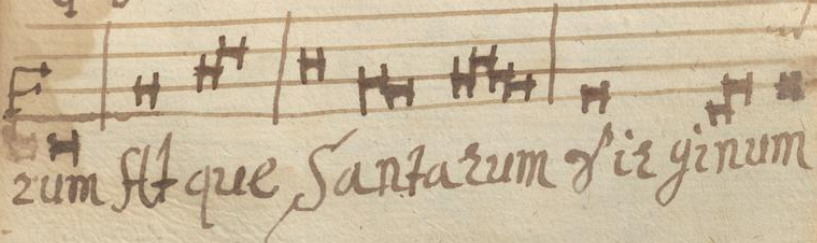 rum Atque Santarum Virginum